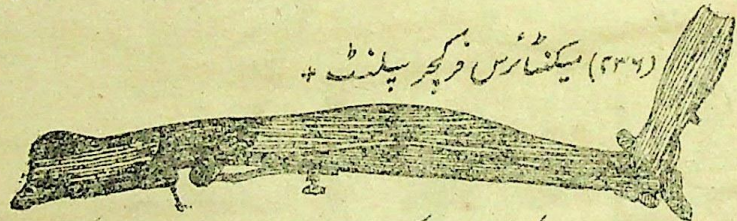 (۲۳۶) میکنٹائرس فرکچر سپلنٹ +